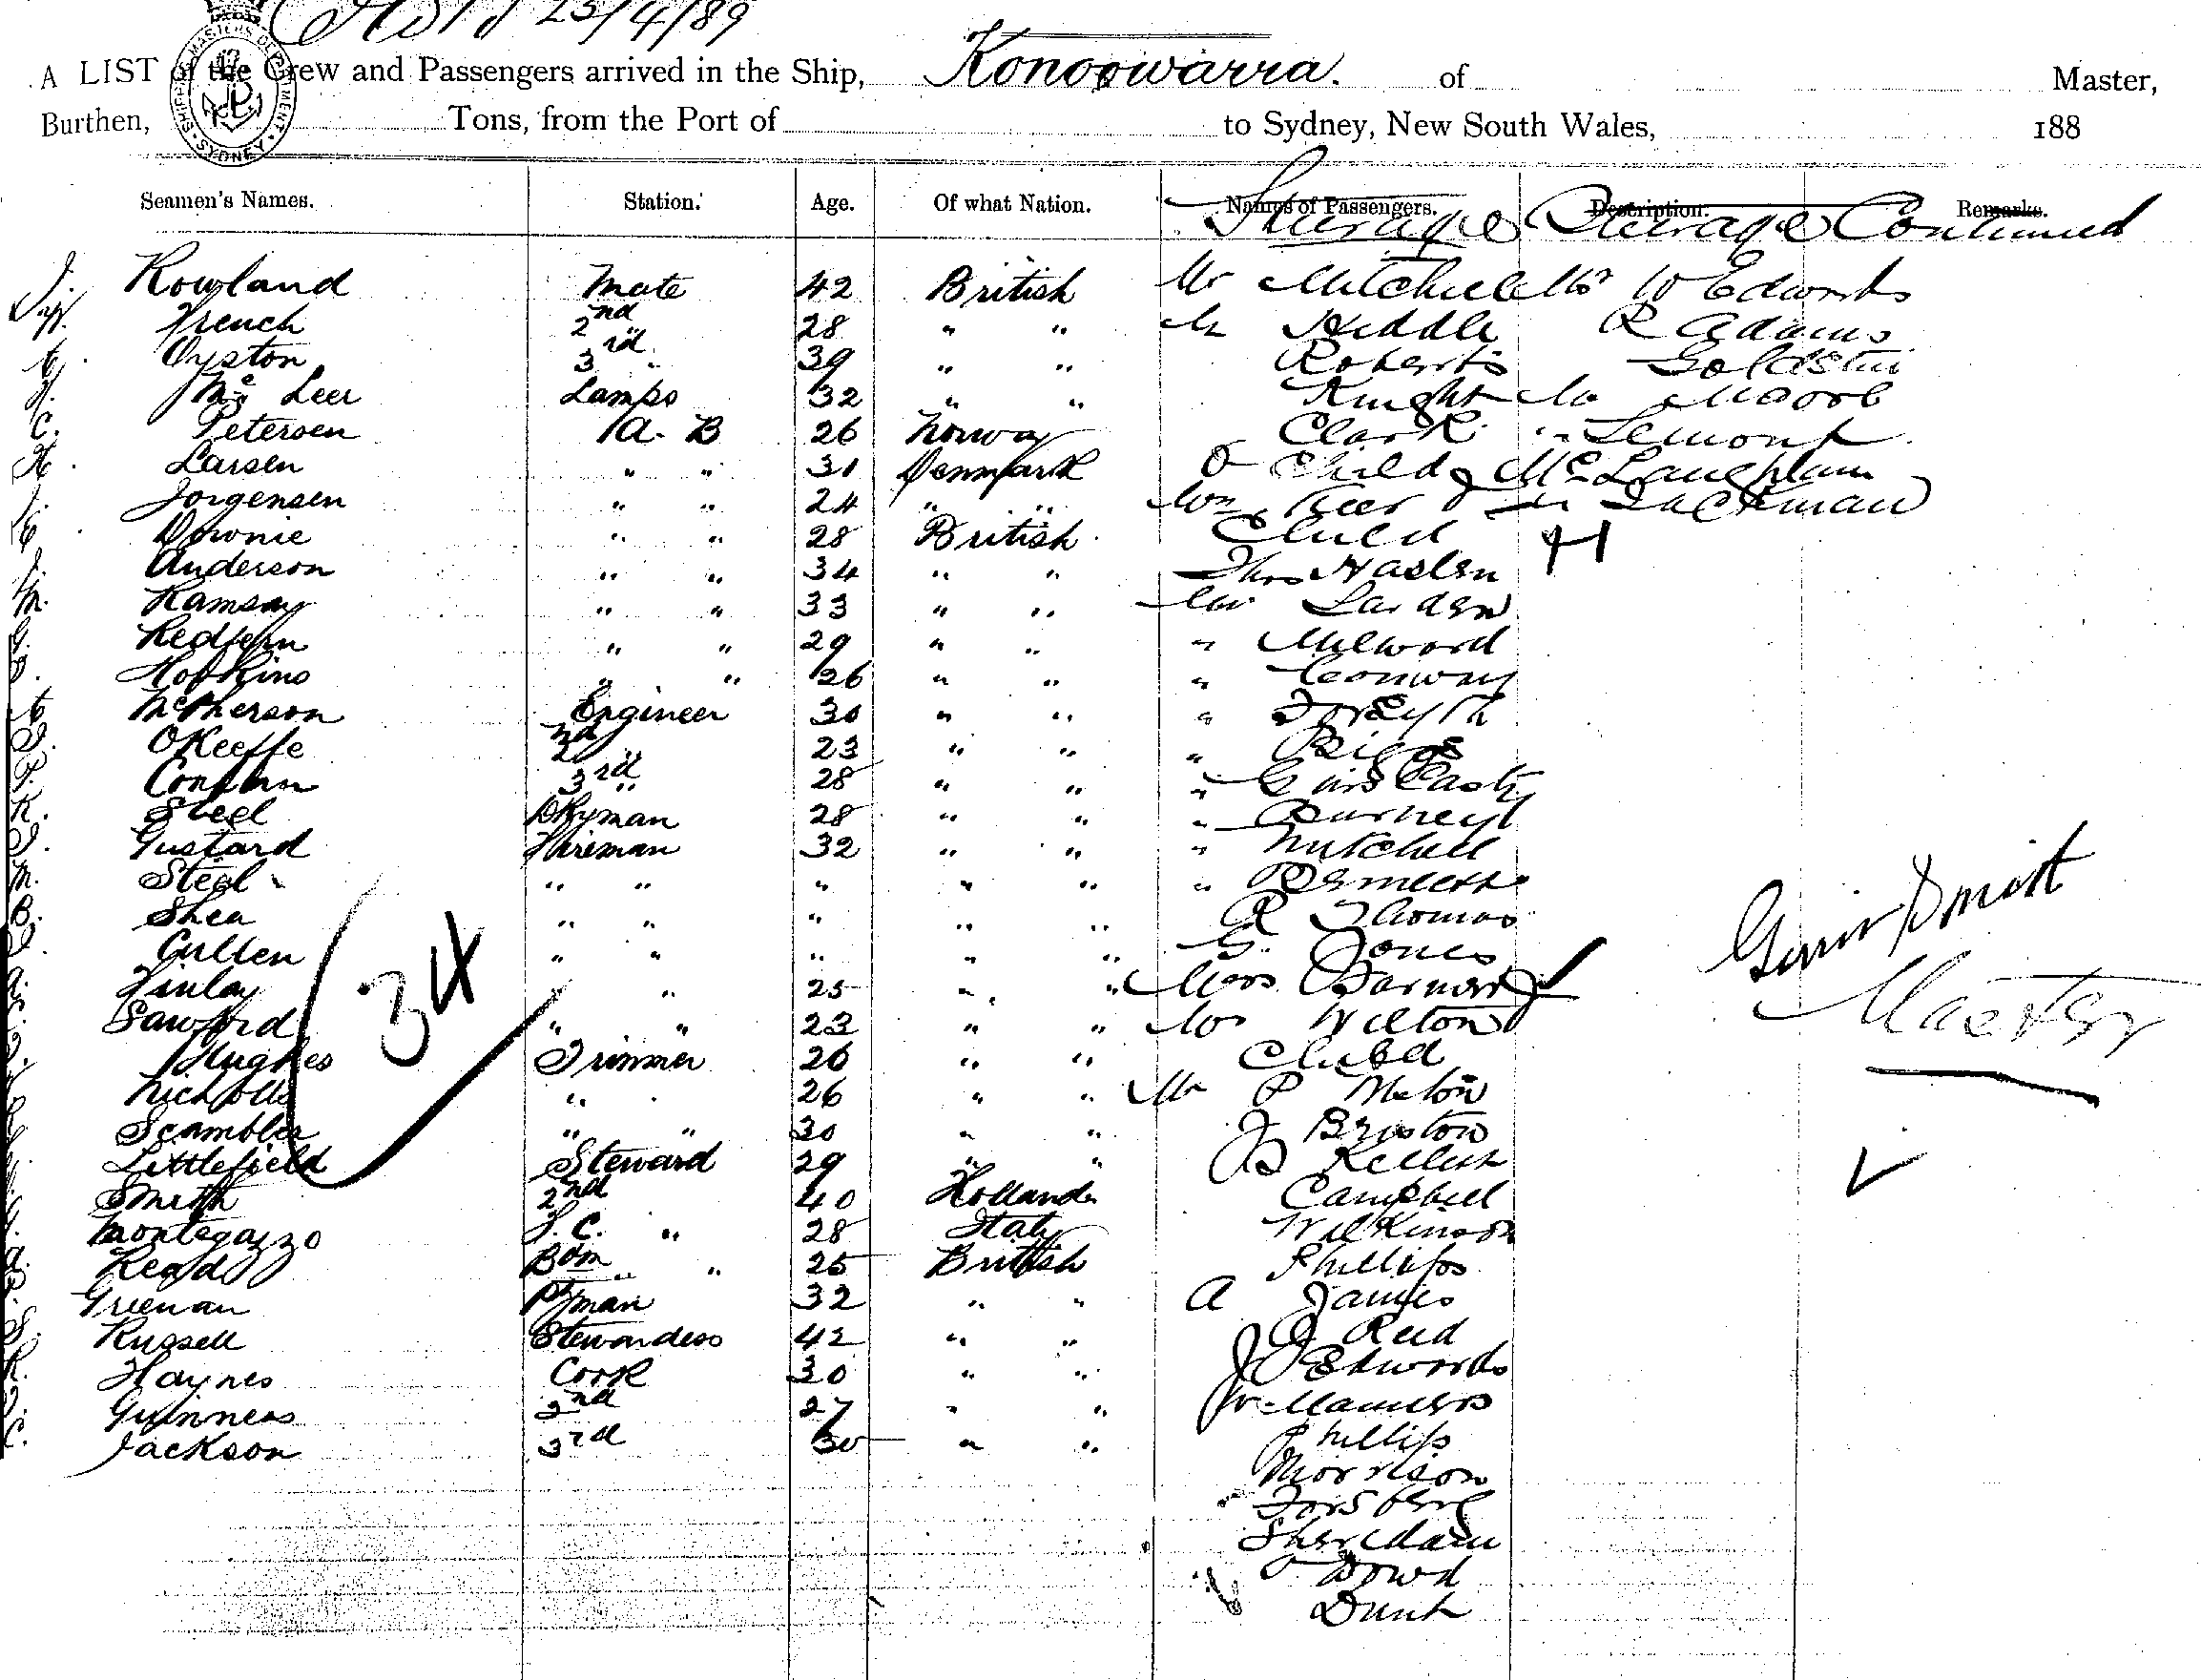 23/4/89
A LIST of the Crew and Passengers arrived in the Ship, Konoowarra. of Master,
Burthen, Tons, from the Port of to Sydney, New South Wales, 188
SHIPPING MASTERS DEPARTMENT SYDNEY
Seamen's Names. Station. Age. Of what Nation. Names of Passengers. Description. Remarks.
Steerage Steerage Continued
J. Rowland Mate 42 British Mr Mitchell Mr W Edwards
French 2nd " 28 " " Mr Hiddle R Adams
Oyston 3rd " 39 " " Roberts Goldstein
Mc Leer Lamps 32 " " Knight
C. Petersen A. B 26 Norway Clark " Lemont
H. Larsen " " 31 Denmark & Child McLaughlam
J. Jorgensen " " 24 " " Jackman
Downie " " 28 British Child
J. Anderson " " 34 " " Thos Haslen
M. Ramsay " " 33 " " Mr Larden
G. Redfern " " 29 " " " Milword
Hopkins " " 26 " " " Conway
McPherson Engineer 30 " " " Forsyth
OKeeffe 2nd " 23 " " " Biggs
3rd " 28 " " "
R. Steel Dkyman 28 " " "
Gustard Fireman 32 " " " Mitchell
M. Steel " " " " " "
B. Shea " " " " " R Thomas
Cullen " " " " " G. Jones
Finlay " " 25 " " Mrs Barnard
Sawford " " 23 " " Mr Wilton
Hughes Trimmer 26 " " Child
Nicholls " 26 " " Mr P Melton
Scambler " " 30 " " J Bristow
Littlefield Steward 29 " "
Smith 2nd 40 Holland Campbell
Montegazzo S. C. " 28 Italy Wilkinson
Read Bdm " " 25 British Phillips
Greenan Pyman 32 " " A James
S. Russell Stewardess 42 " " J Reid
R. Haynes Cook 30 " " J Edwards
Guinness 2nd 27 " "
C. Jackson 3rd 30 " " Phillips
Morrison
" Forsberg
Sheridan
O Dowd
Dunk
34
Smith
Master